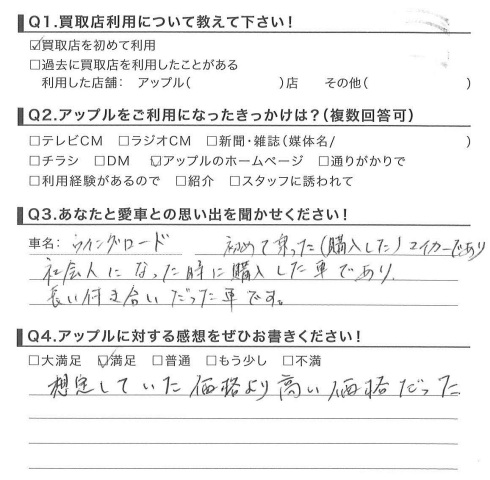 Q1.買取店利用について教えて下さい！
☑買取店を初めて利用
□過去に買取店を利用したことがある
利用した店舗： アップル（ ）店 その他（ ）
Q2.アップルをご利用になったきっかけは？（複数回答可）
□テレビCM □ラジオCM □新聞・雑誌（媒体名/ ）
□チラシ □DM ☑アップルのホームページ □通りがかりで
□利用経験があるので □紹介 □スタッフに誘われて
Q3.あなたと愛車との思い出を聞かせください！
車名： ウイングロード 初めて乗った（購入した）マイカーであり
社会人になった時に購入した車であり、
長い付き合いだった車です。
Q4.アップルに対する感想をぜひお書きください！
□大満足 ☑満足 □普通 □もう少し □不満
想定していた価格より高い価格だった